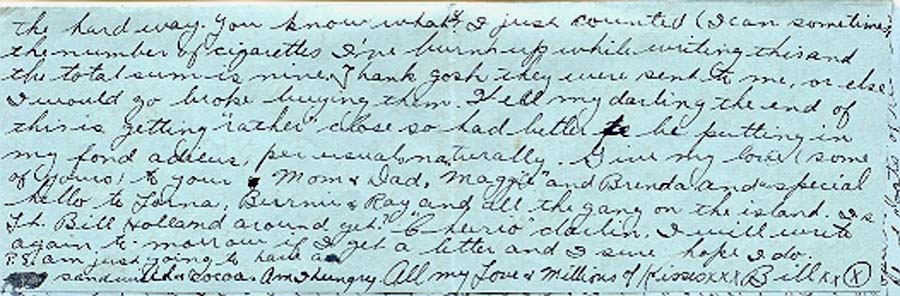 the hard way. You know what? I just counted (I can sometimes)
the number of cigarettes I've burnt up while writing this and
the total sum is nine, Thank gosh they were sent to me, or else
I would go broke buying them. Well my darling the end of
this is getting "rather" close so had better be putting in
my fond adieus, per usual naturally. Give my love (some
of yours) to your Mom & Dad, Maggie" and Brenda and a special
hello to Lorna, Burnie & Ray and all the gang on the island. Is
Lt. Bill Holland around yet? "Cheerio" darlin, I will write
again to-morrow if I get a letter and I sure hope I do.
P.S. am just going to have a
sandwich & Cocoa. Am I hungry. All my Love & Millions of Kisses xxx Bill xx (X)